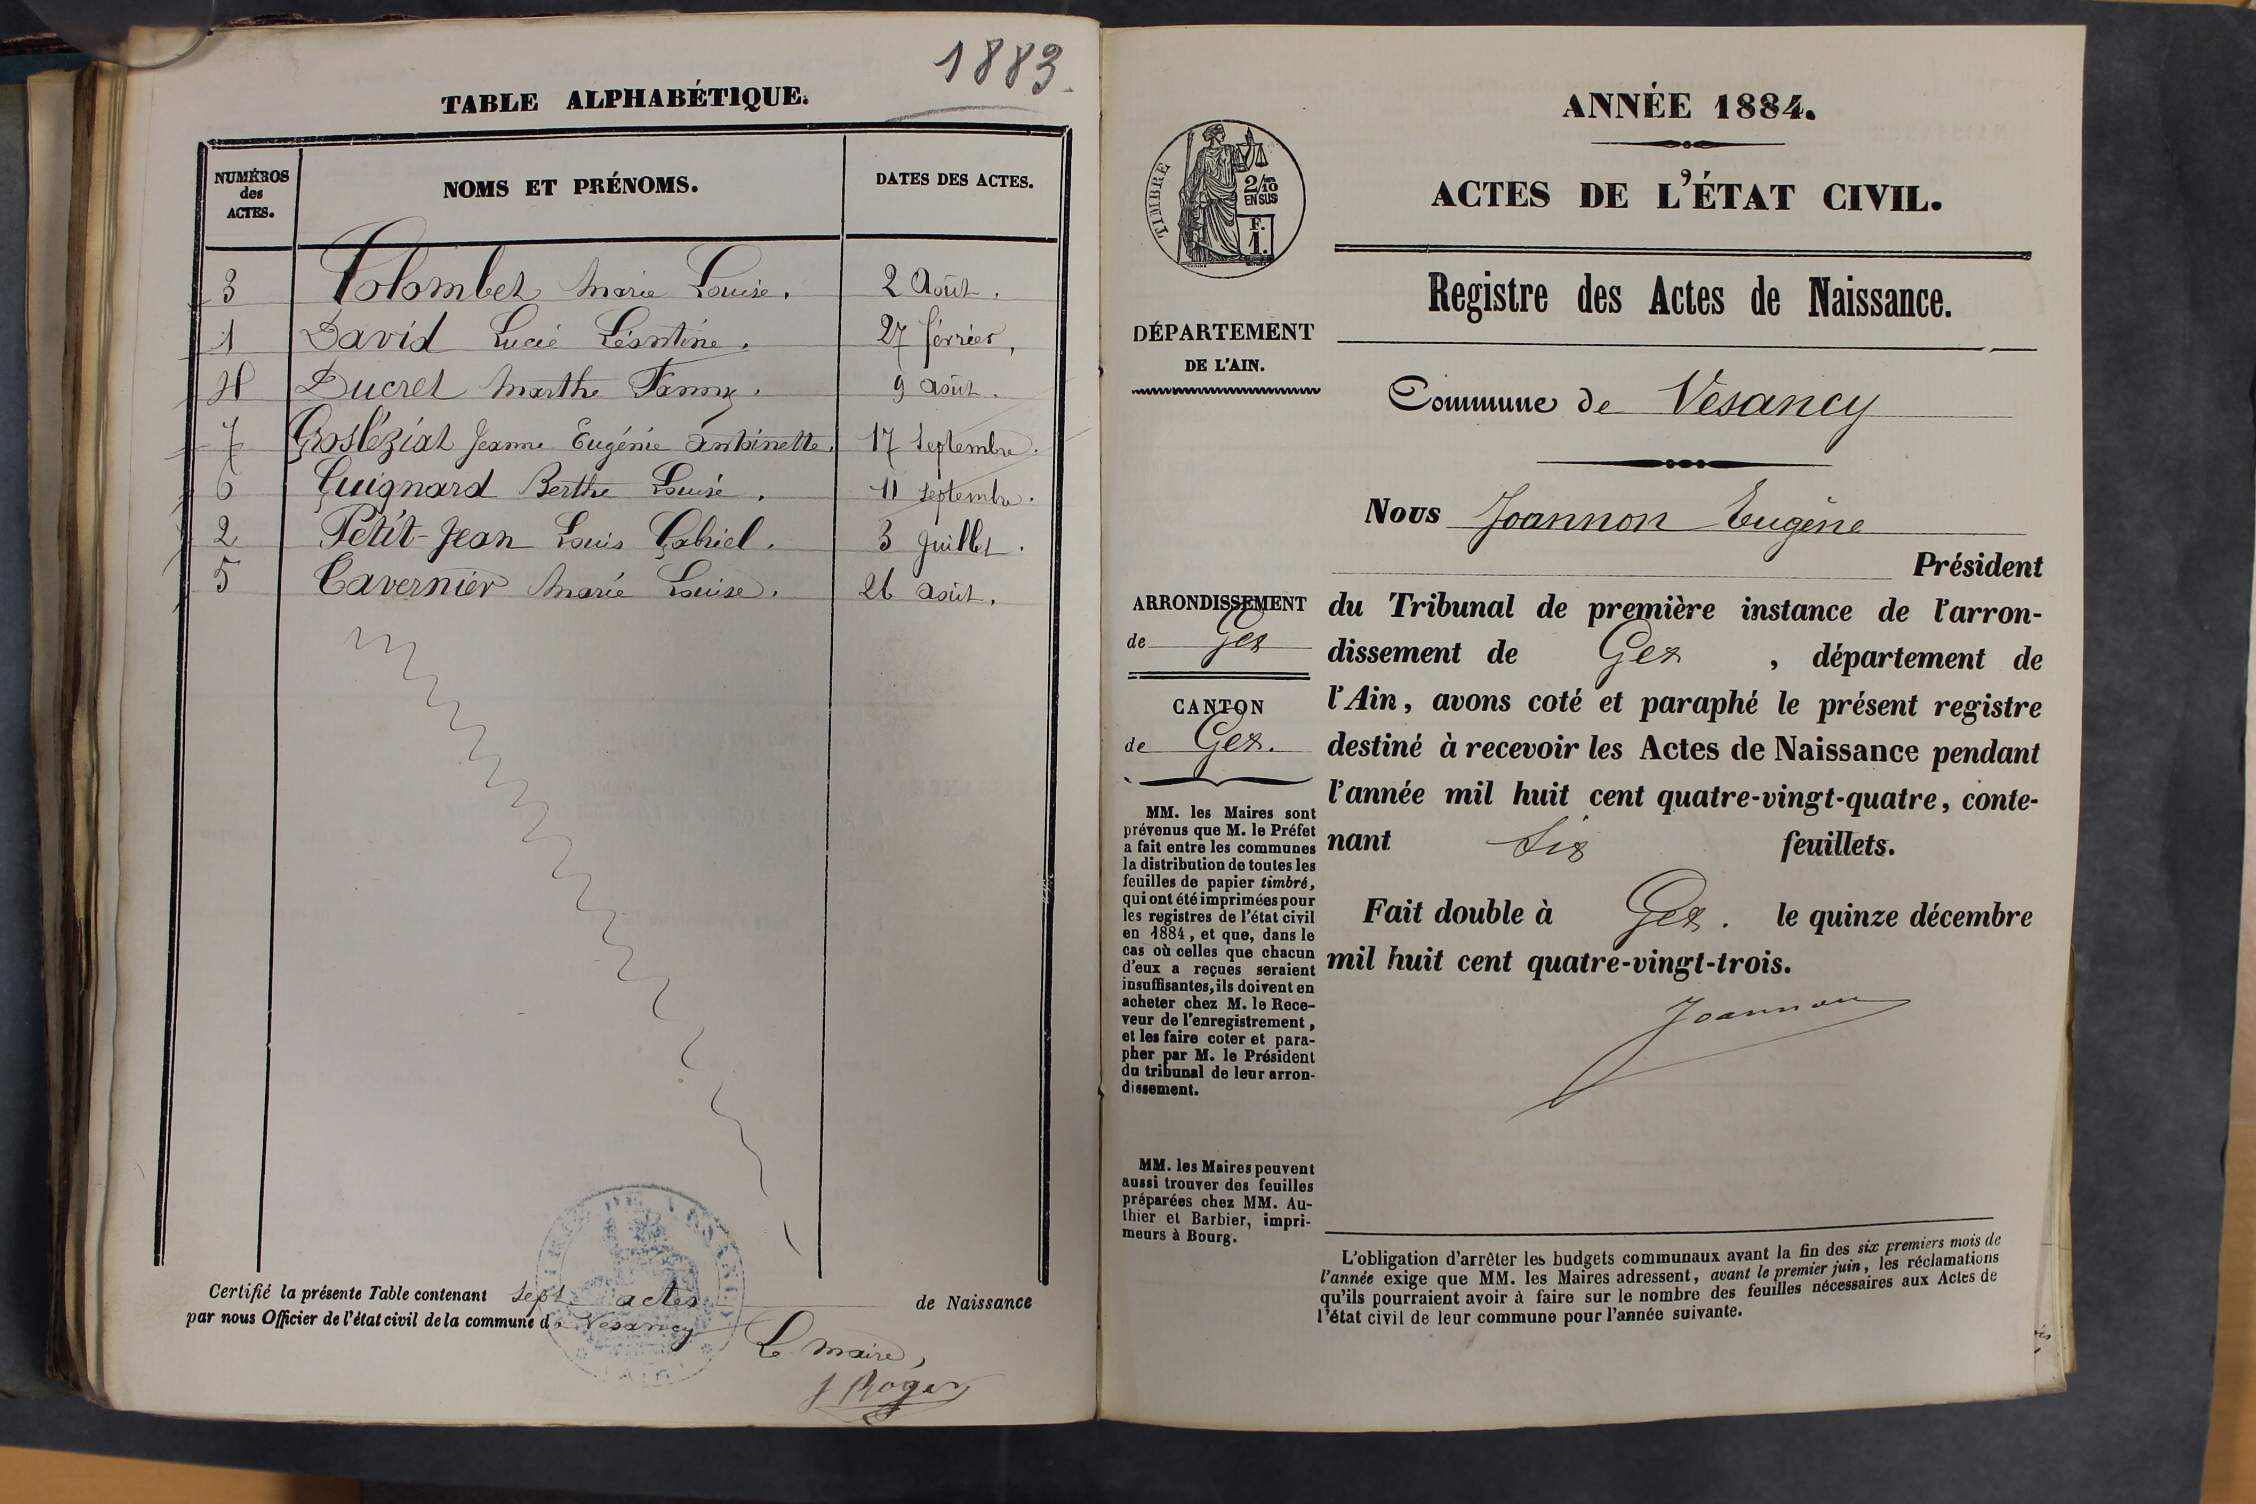 1883.
TABLE ALPHABÉTIQUE.
NUMÉROS
des
ACTES.
NOMS ET PRÉNOMS.
DATES DES ACTES.
3 Colombet Marie Louise. 2 Août.
1 David Lucie Léontine. 27 février.
4 Ducret Marthe Fanny. 9 août.
7 Grosléziat Jeanne Eugénie Antoinette. 17 Septembre.
6 Guignard Berthe Louise. 11 septembre.
2 Petit-Jean Louis Gabriel. 3 Juillet.
5 Tavernier Marie Louise. 26 août.
Certifié la présente Table contenant sept actes de Naissance
par nous Officier de l'état civil de la commune de Vesancy
Le Maire,
J Roger
MAIRIE DE VESANCY
AIN
ANNÉE 1884.
ACTES DE L'ÉTAT CIVIL.
TIMBRE
2/10
EN SUS
F.
1.
Registre des Actes de Naissance.
DÉPARTEMENT
DE L'AIN.
Commune de Vesancy
Nous Joannon Eugène
Président
ARRONDISSEMENT
de Gex
CANTON
de Gex.
du Tribunal de première instance de l'arron-
dissement de Gex, département de
l'Ain, avons coté et paraphé le présent registre
destiné à recevoir les Actes de Naissance pendant
l'année mil huit cent quatre-vingt-quatre, conte-
nant six feuillets.
Fait double à Gex. le quinze décembre
mil huit cent quatre-vingt-trois.
Joannon
MM. les Maires sont
prévenus que M. le Préfet
a fait entre les communes
la distribution de toutes les
feuilles de papier timbré,
qui ont été imprimées pour
les registres de l'état civil
en 1884, et que, dans le
cas où celles que chacun
d'eux a reçues seraient
insuffisantes, ils doivent en
acheter chez M. le Rece-
veur de l'enregistrement,
et les faire coter et para-
pher par M. le Président
du tribunal de leur arron-
dissement.
MM. les Maires peuvent
aussi trouver des feuilles
préparées chez MM. Au-
thier et Barbier, impri-
meurs à Bourg.
L'obligation d'arrêter les budgets communaux avant la fin des six premiers mois de
l'année exige que MM. les Maires adressent, avant le premier juin, les réclamations
qu'ils pourraient avoir à faire sur le nombre des feuilles nécessaires aux Actes de
l'état civil de leur commune pour l'année suivante.